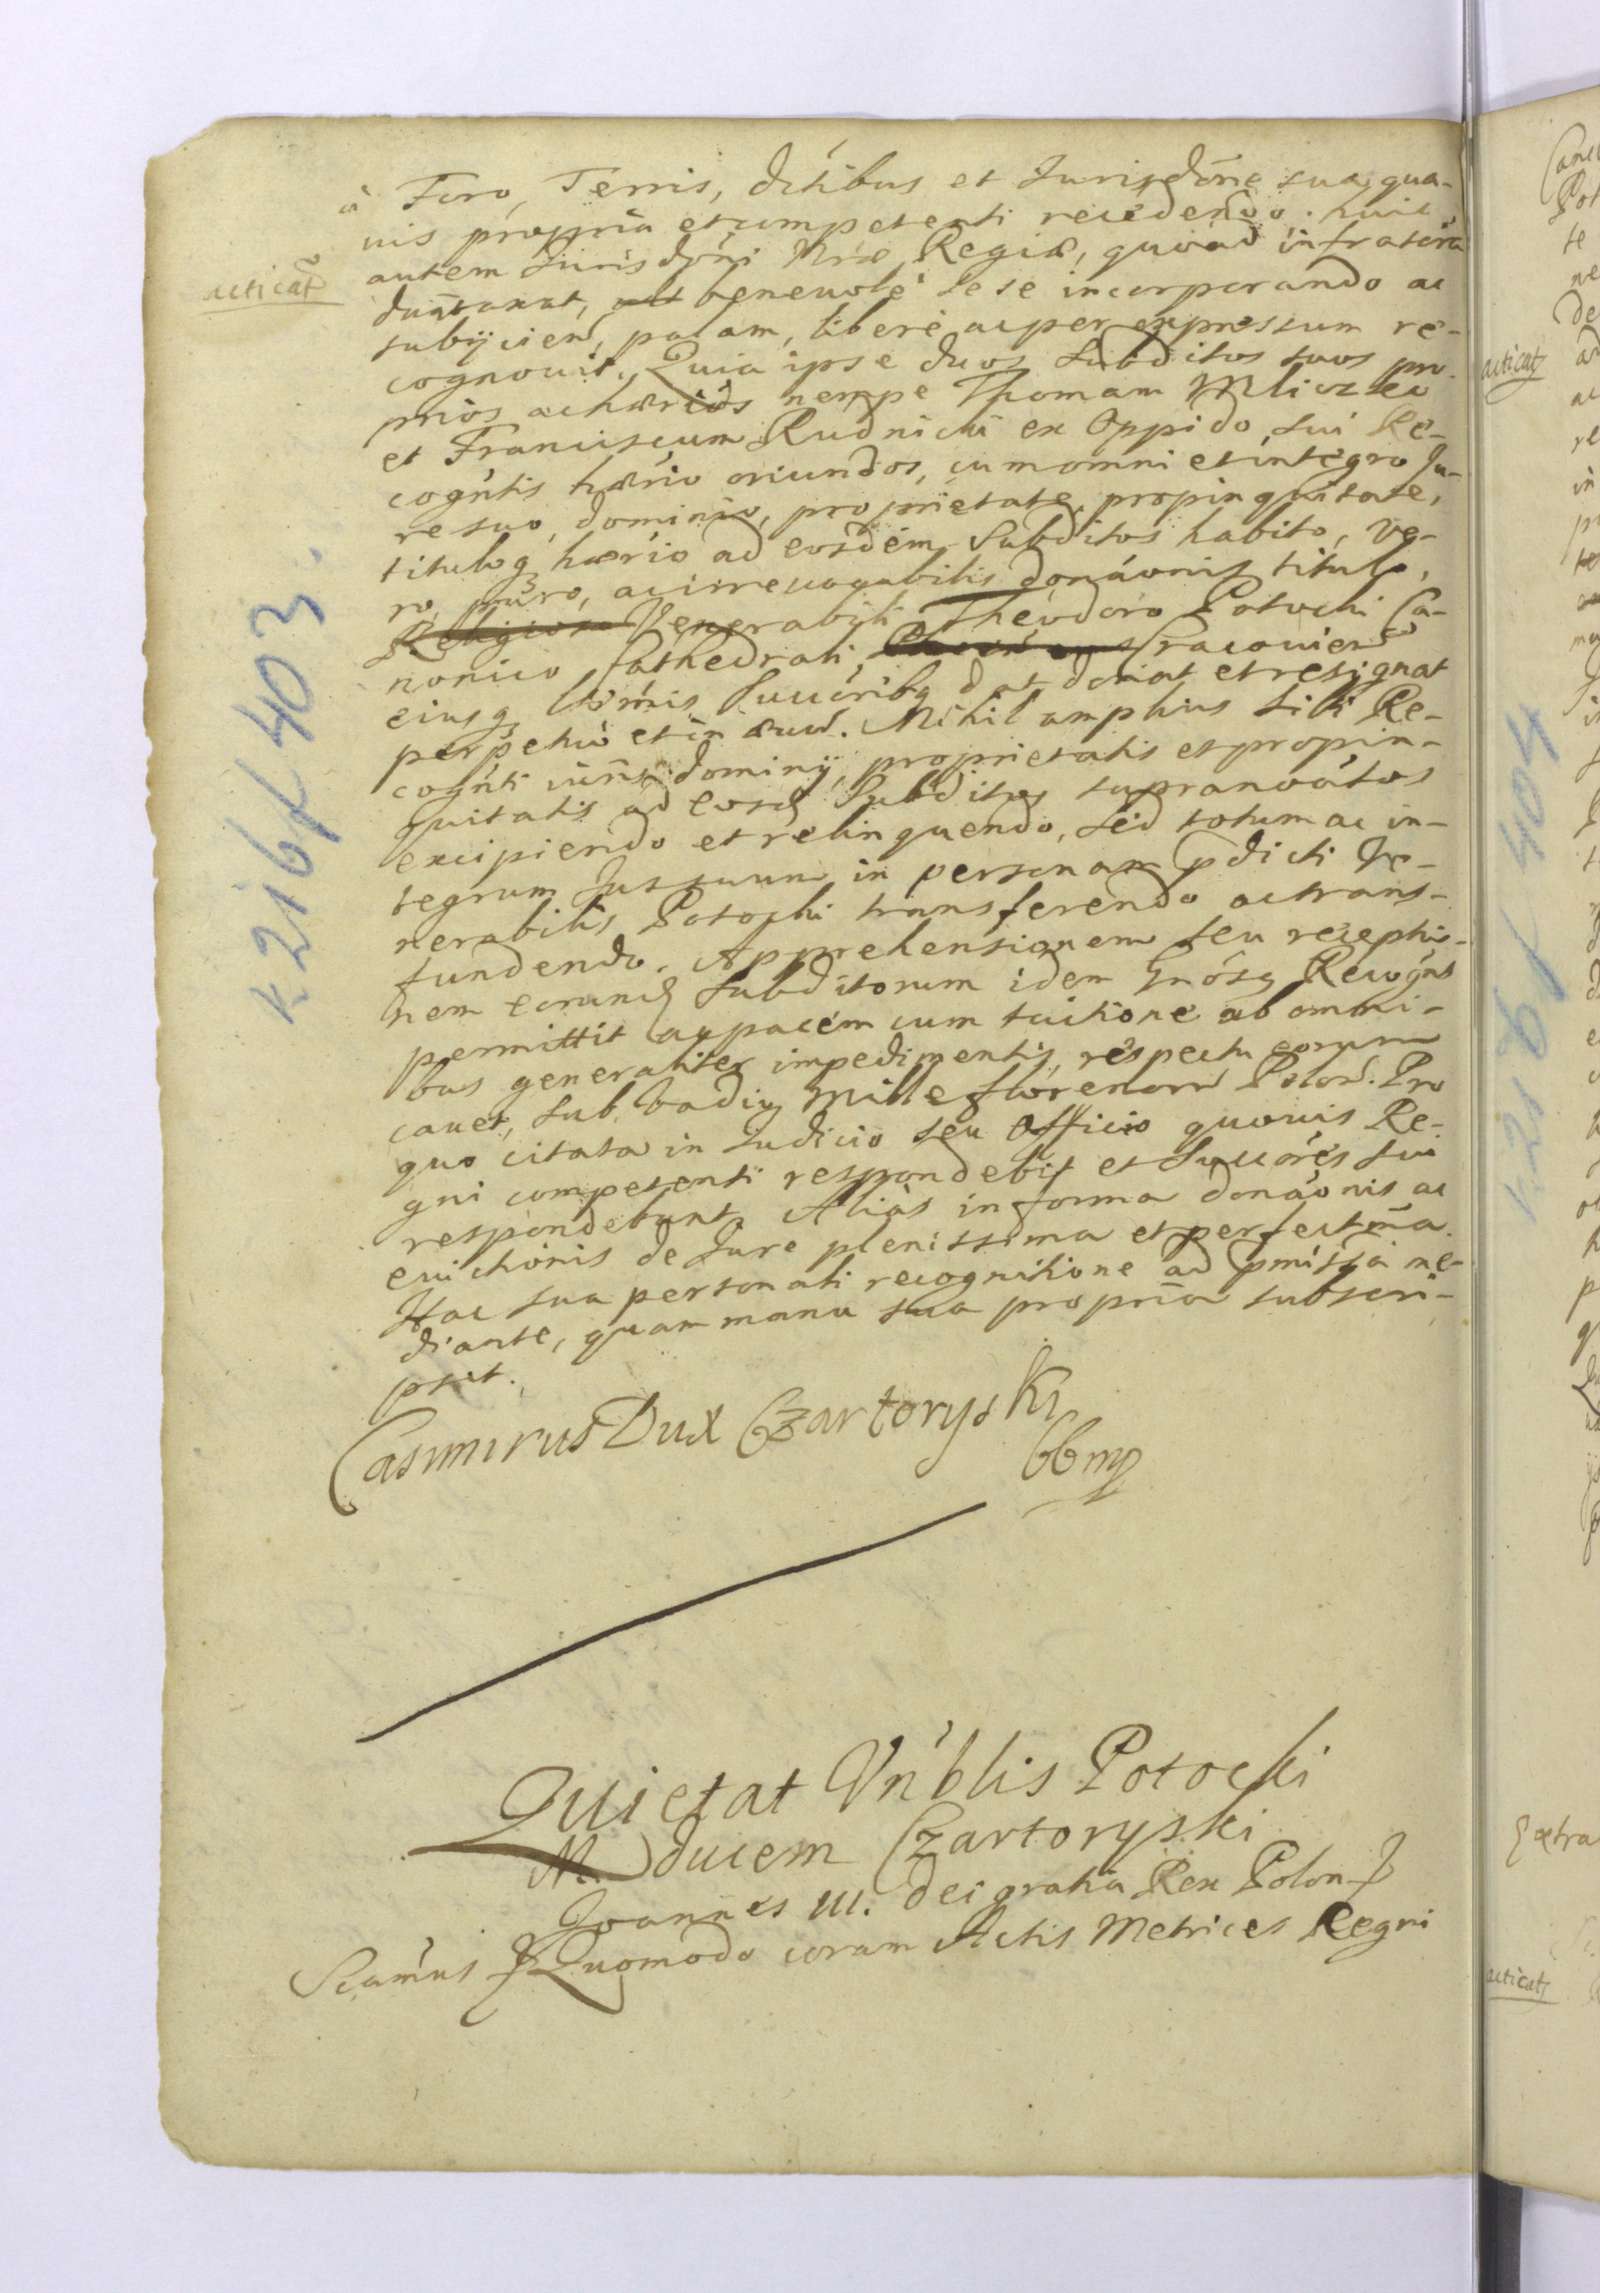 à Foro, Terris, dítibus et Jurisdōne sua, qua-
uis propria et competenti recedendo. huic
autem Jurisdōni Mtis Regiæ, quoad infrascra
acticat
duntaxat, benevolè sese incorporando ac
subijcien, palam, liberè ac per expressum re-
cognouit, Quia ipse duos Subditos suos pro-
prios ac hærios nempe Thomam
et Franciscum Rudnicki ex Oppido sui Re-
cogntis hærio oriundos, cum omni et integro Ju-
re suo, dominio, proprietate, propinquitate,
tituloq hærio ad eosdem Subditos habito, ve-
ro, puro, ac irreuocabilis donáonis titulo,
Religioso Venerabili Theodoro Potocki Ca-
nonico Cathedrali Cracouien
eiusq ltimis Succoribq dat donat et resignat
perpetuò et in æuū. Nihil amplius sibi Re-
cognti iuris, dominij, proprietatis et propin-
quitatis ad eosd Subditos supranoátos
excipiendo et relinquendo, sed totum ac in-
tegrum Jus suum in personam pdicti Ve-
nerabilis Potocki transferendo ac trans-
fundendo. Apprehensionem seu receptio-
nem eorund Subditorum idem Gnósq Recogns
permittit ac pacem cum tuitione ab omni-
bus generaliter impedimentis, respectu eorum
cauet, sub vadio Mille florenorū Polon. Pro
quo citata in Judicio seu Officio quouis Re-
gni competenti respondebit et Succóres sui
respondebunt. Aliàs in forma donáonis ac
euictionis de Jure plenissima et perfectma.
Hac sua personali recognitione ad pmissa me-
diante, quam manu sua propria subscri-
psit.
Casimirus Dux Czartoryski
mp
K 216 f 403.
Quietat Vnblis Potocki
M. Ducem Czartoryski
Joannes III. Dei gratia Rex Polon
Scámus Quomodo coram Actis Metrices Regni
acticat
K 216 f 404
acticat